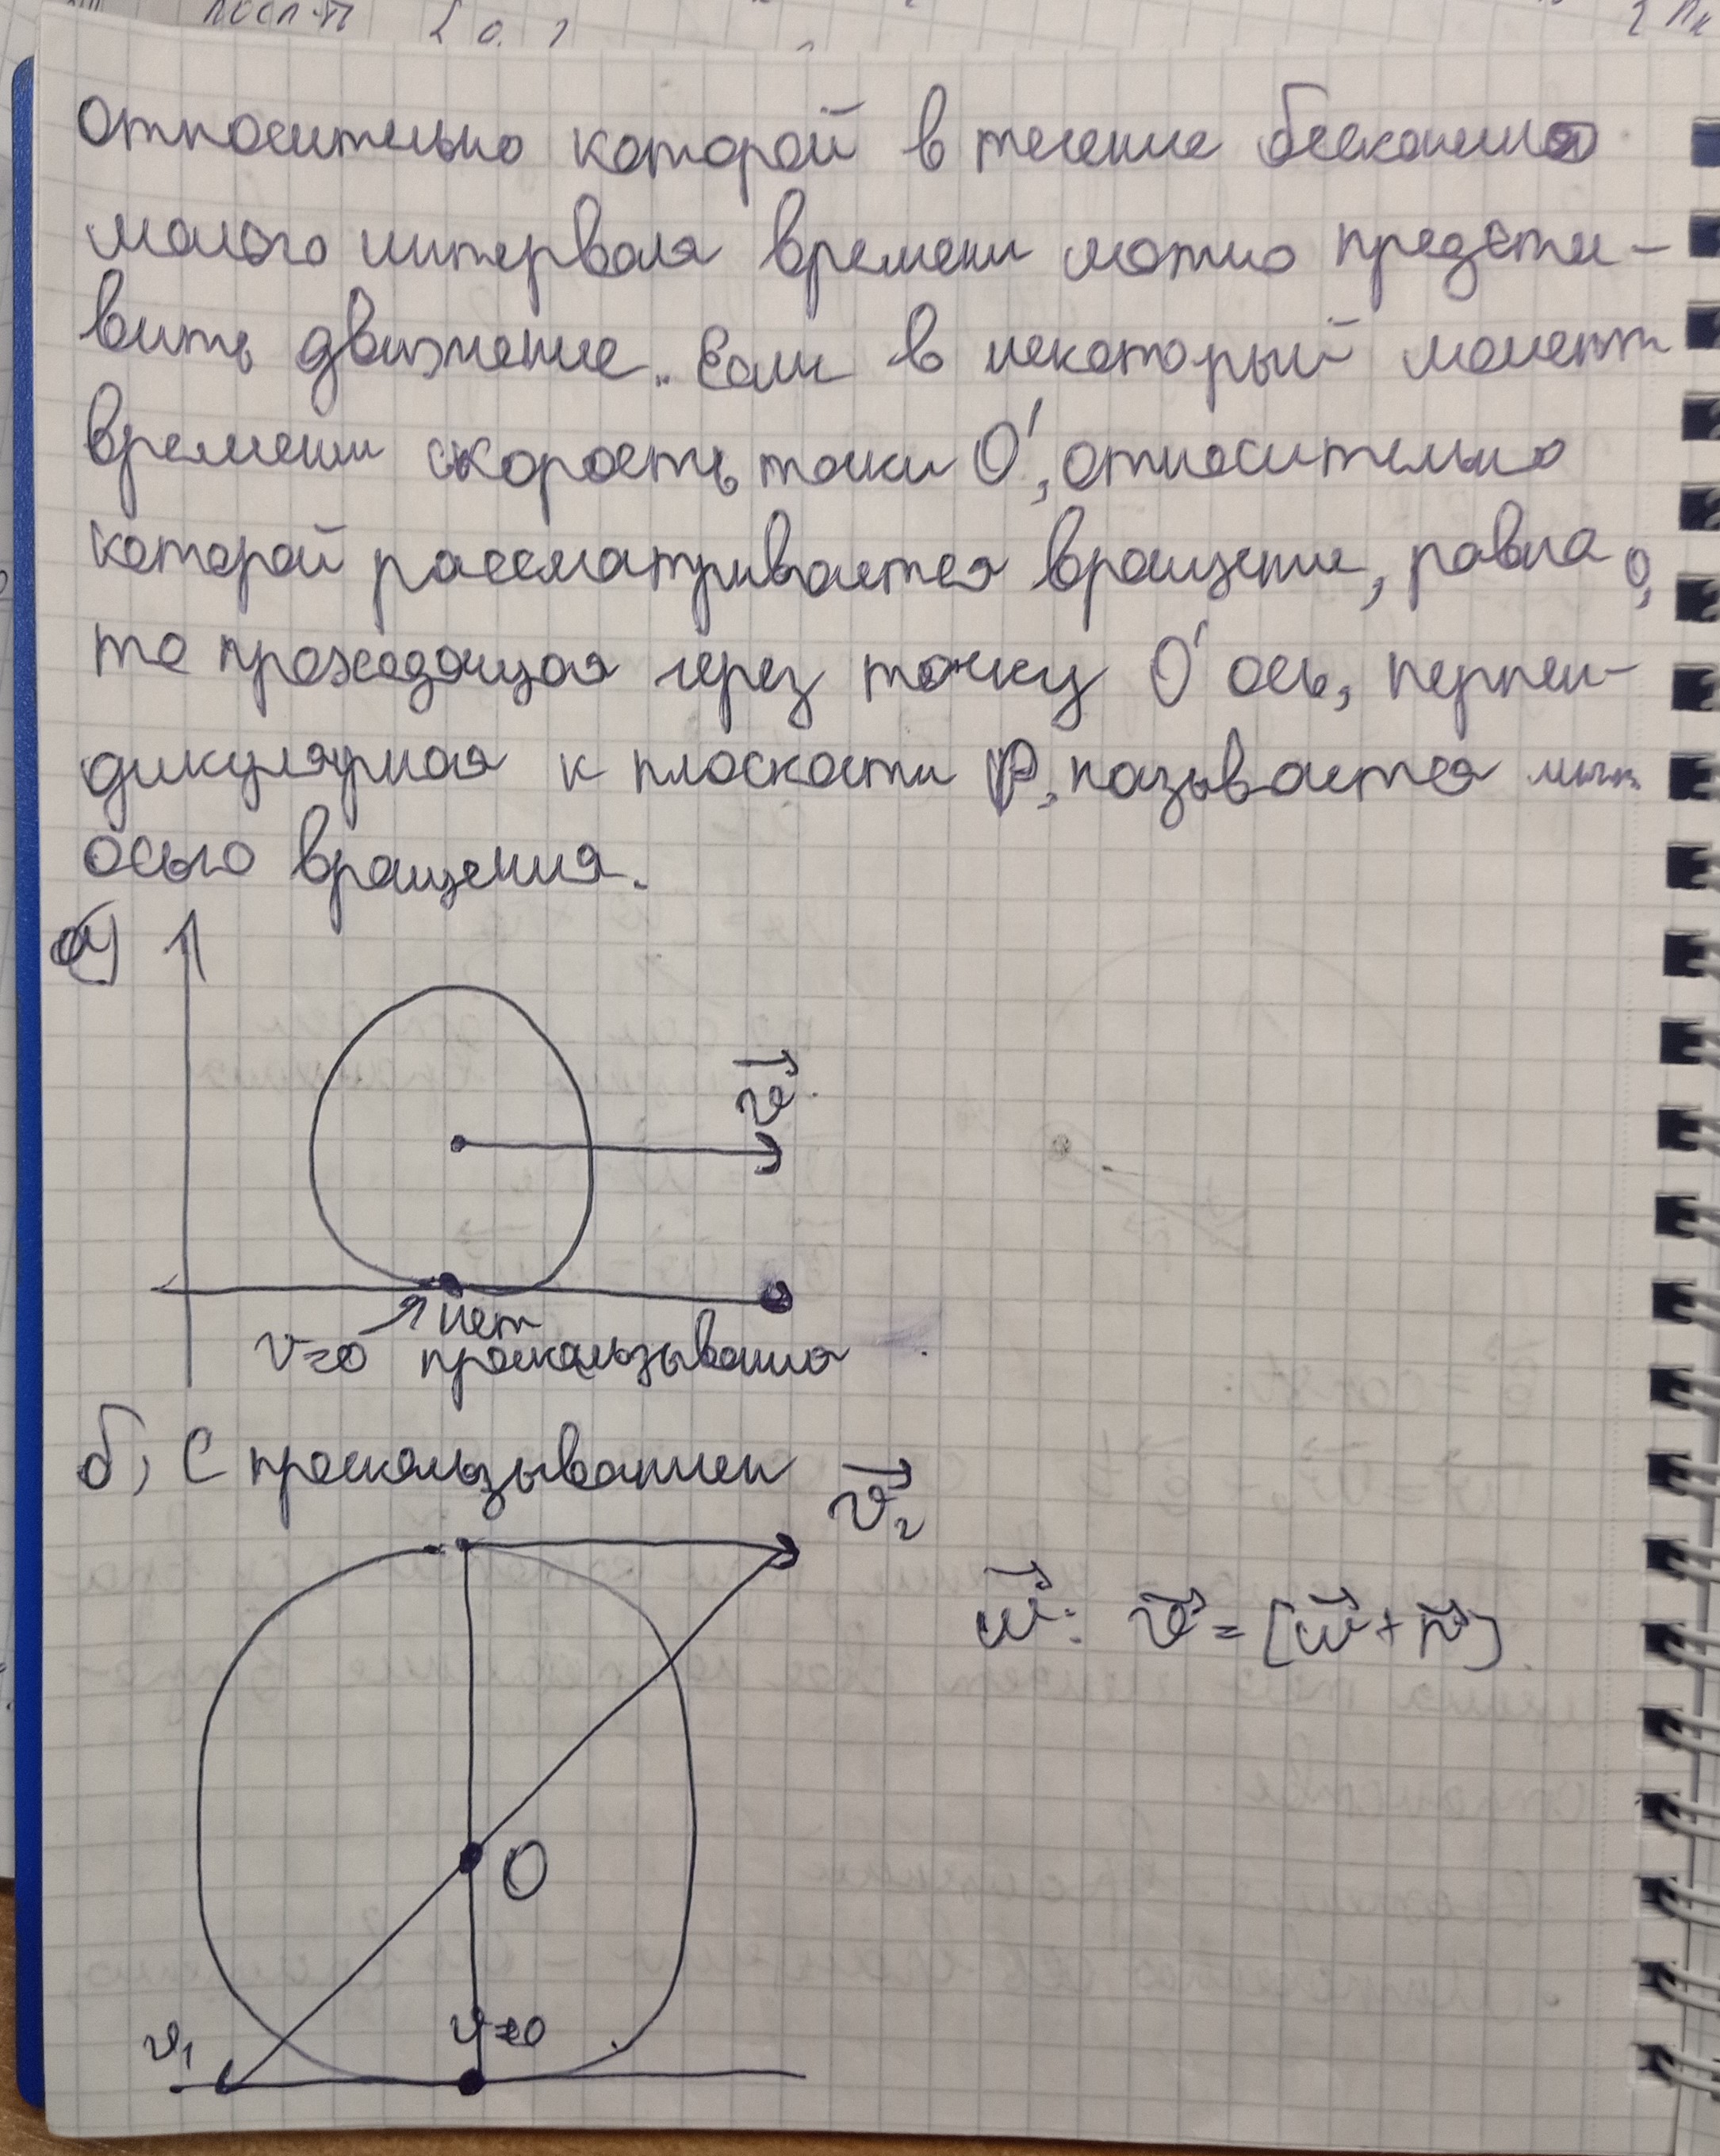 относительно которой в течение бесконечно
малого интервала времени можно предста-
вить движение. Если в некоторый момент
времени скорость точки O', относительно
которой рассматривается вращение, равна 0,
то проходящая через точку O' ось, перпен-
дикулярная к плоскости P, называется мгн.
осью вращения.
а)
v⃗
нет
v=0 проскальзывания
б) С проскальзыванием
v⃗₂
ω⃗: v⃗ = [ω⃗ + r⃗]
O
v₁